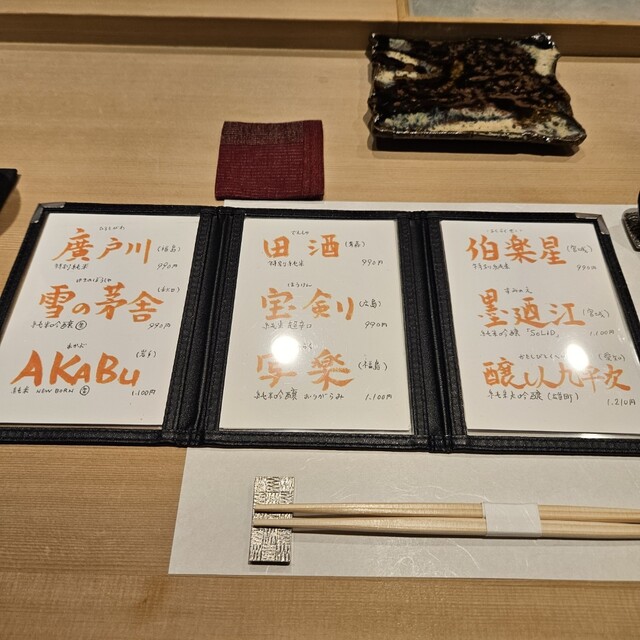 ひろとがわ
廣戸川 (福島)
特別純米 990円
ゆきのぼうしゃ
雪の茅舎 (秋田)
純米吟醸 990円
あかぶ
AKABU (岩手)
純米 NEW BORN 1.100円
でんしゅ
田酒 (青森)
特別純米 990円
ほうけん
宝剣 (広島)
純米 超辛口 990円
写楽 (福島)
純米吟醸 おりがらみ 1.100円
はくらくせい
伯楽星 (宮城)
特別純米 990円
すみのえ
墨廼江 (宮城)
純米吟醸「SOLID」 1.100円
かもしびと
醸し人九平次 (愛知)
純米大吟醸 (雄町) 1.210円